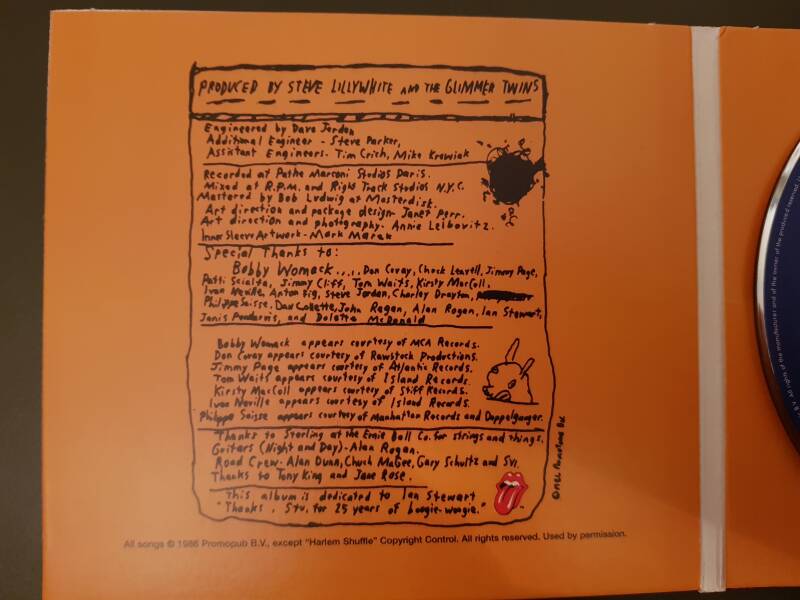 PRODUCED BY STEVE LILLYWHITE AND THE GLIMMER TWINS
Engineered by Dave Jerden
Additional Engineer - Steve Parker,
Assistant Engineers - Tim Crich, Mike Krowiak
Recorded at Pathe Marconi Studios Paris.
Mixed at R.P.M. and Right Track Studios N.Y.C.
Mastered by Bob Ludwig at Masterdisk.
Art direction and package design - Janet Perr.
Art direction and photography - Annie Leibovitz.
Inner Sleeve Artwork - Mark Marek
Special Thanks to:
Bobby Womack...., Don Covay, Chuck Leavell, Jimmy Page,
Patti Scialfa, Jimmy Cliff, Tom Waits, Kirsty MacColl,
Ivan Neville, Anton Fig, Steve Jordan, Charley Drayton,
Philippe Saisse, Dan Collette, John Regan, Alan Rogan, Ian Stewart,
Janis Pendarvis, and Dolette McDonald
Bobby Womack appears courtesy of MCA Records.
Don Covay appears courtesy of Rawstock Productions.
Jimmy Page appears courtesy of Atlantic Records.
Tom Waits appears courtesy of Island Records.
Kirsty MacColl appears courtesy of Stiff Records.
Ivan Neville appears courtesy of Island Records.
Philippe Saisse appears courtesy of Manhattan Records and Doppelganger.
Thanks to Sterling at the Ernie Ball Co. for strings and things.
Guitars (Night and Day) - Alan Rogan.
Road Crew - Alan Dunn, Chuch MaGee, Gary Schultz and Svi.
Thanks to Tony King and Jane Rose.
This album is dedicated to Ian Stewart
"Thanks, Stu, for 25 years of boogie-woogie."
TM
All songs © 1986 Promopub B.V., except "Harlem Shuffle" Copyright Control. All rights reserved. Used by permission.